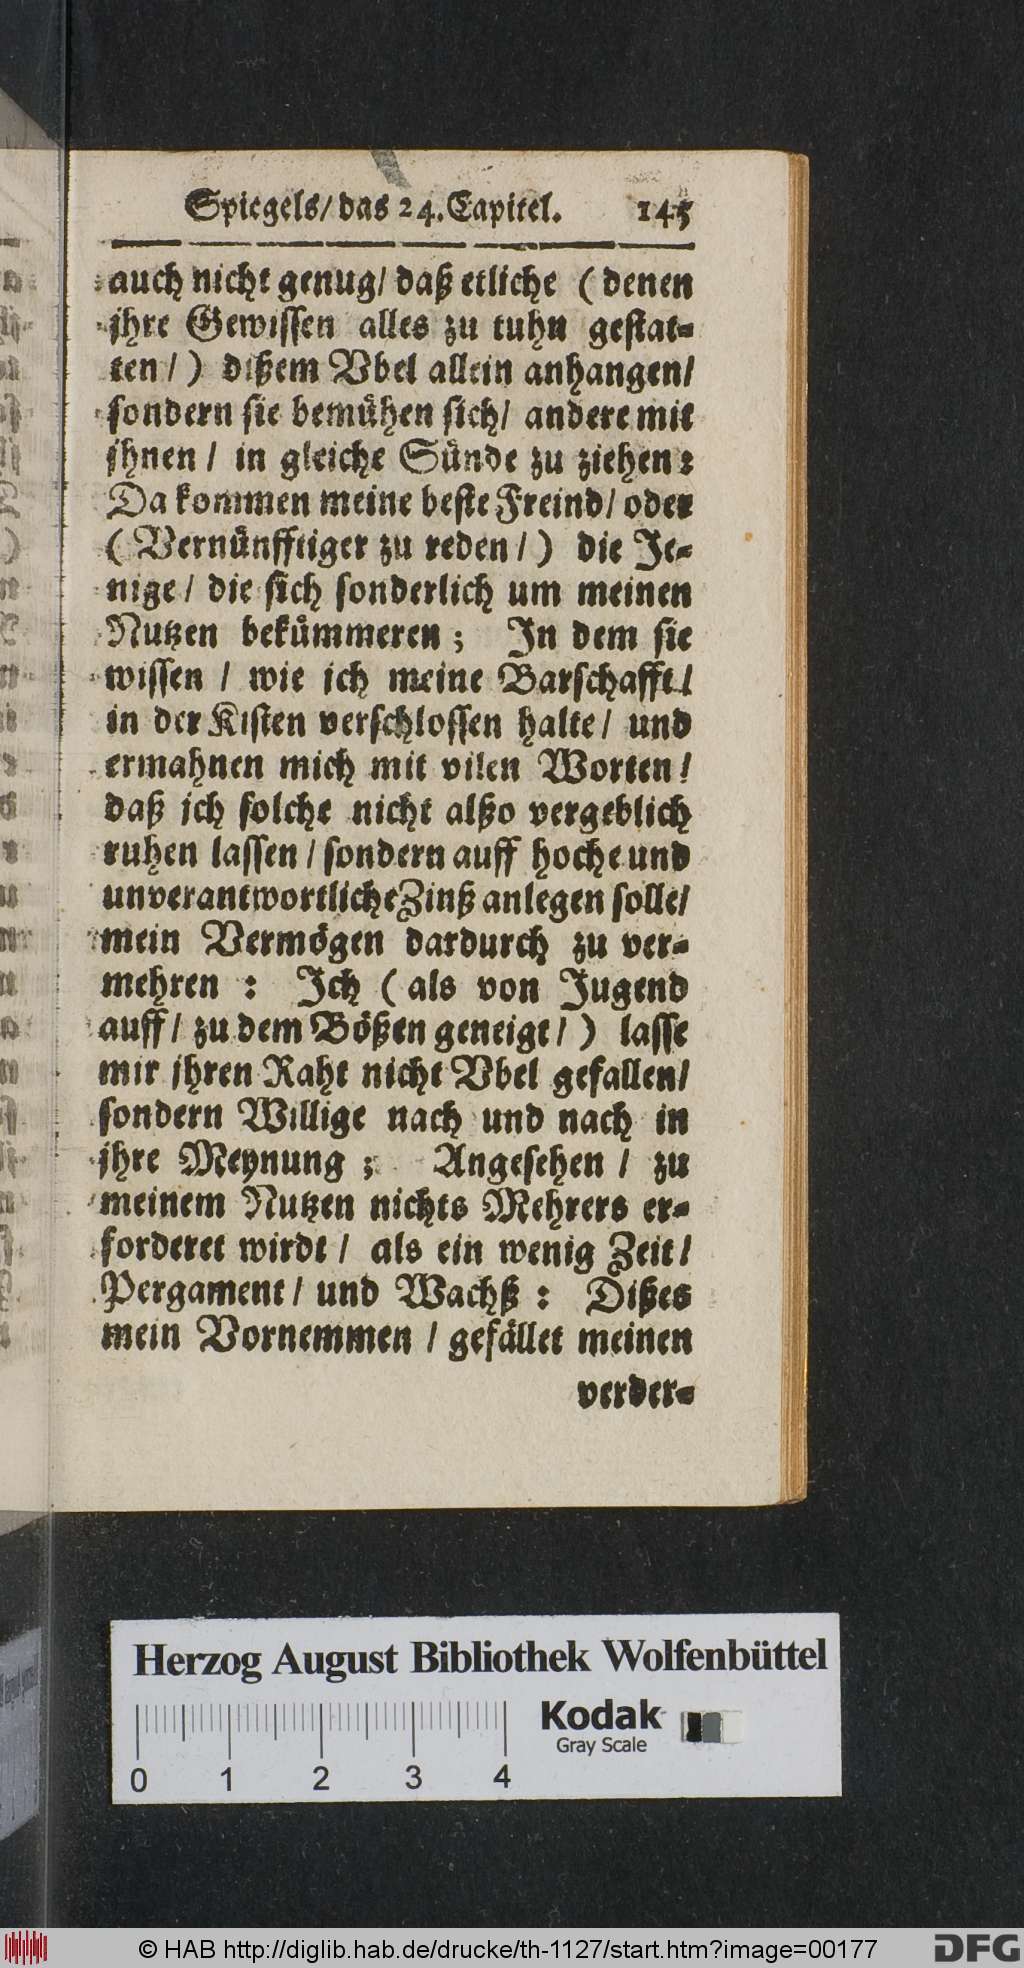 Spiegels/ das 24. Capitel. 145
auch nicht genug/ daß etliche ( denen
jhre Gewissen alles zu tuhn gestat-
ten / ) dißem Vbel allein anhangen/
sondern sie bemühen sich/ andere mit
jhnen / in gleiche Sünde zu ziehen:
Da kommen meine beste Freind/ oder
( Vernünfftiger zu reden / ) die Je-
nige / die sich sonderlich um meinen
Nutzen bekümmeren ; In dem sie
wissen / wie ich meine Barschafft/
in der Kisten verschlossen halte / und
ermahnen mich mit vilen Worten/
daß jch solche nicht alßo vergeblich
ruhen lassen / sondern auff hoche und
unverantwortliche Zinß anlegen solle/
mein Vermögen dardurch zu ver-
mehren : Jch ( als von Jugend
auff / zu dem Bößen geneigt / ) lasse
mir jhren Raht nicht Vbel gefallen/
sondern Willige nach und nach in
jhre Meynung ; Angesehen / zu
meinem Nutzen nichts Mehrers er-
forderet wirdt / als ein wenig Zeit/
Pergament / und Wachß : Dißes
mein Vornemmen / gefället meinen
verder-
Herzog August Bibliothek Wolfenbüttel
Kodak
Gray Scale
0 1 2 3 4
© HAB http://diglib.hab.de/drucke/th-1127/start.htm?image=00177
DFG